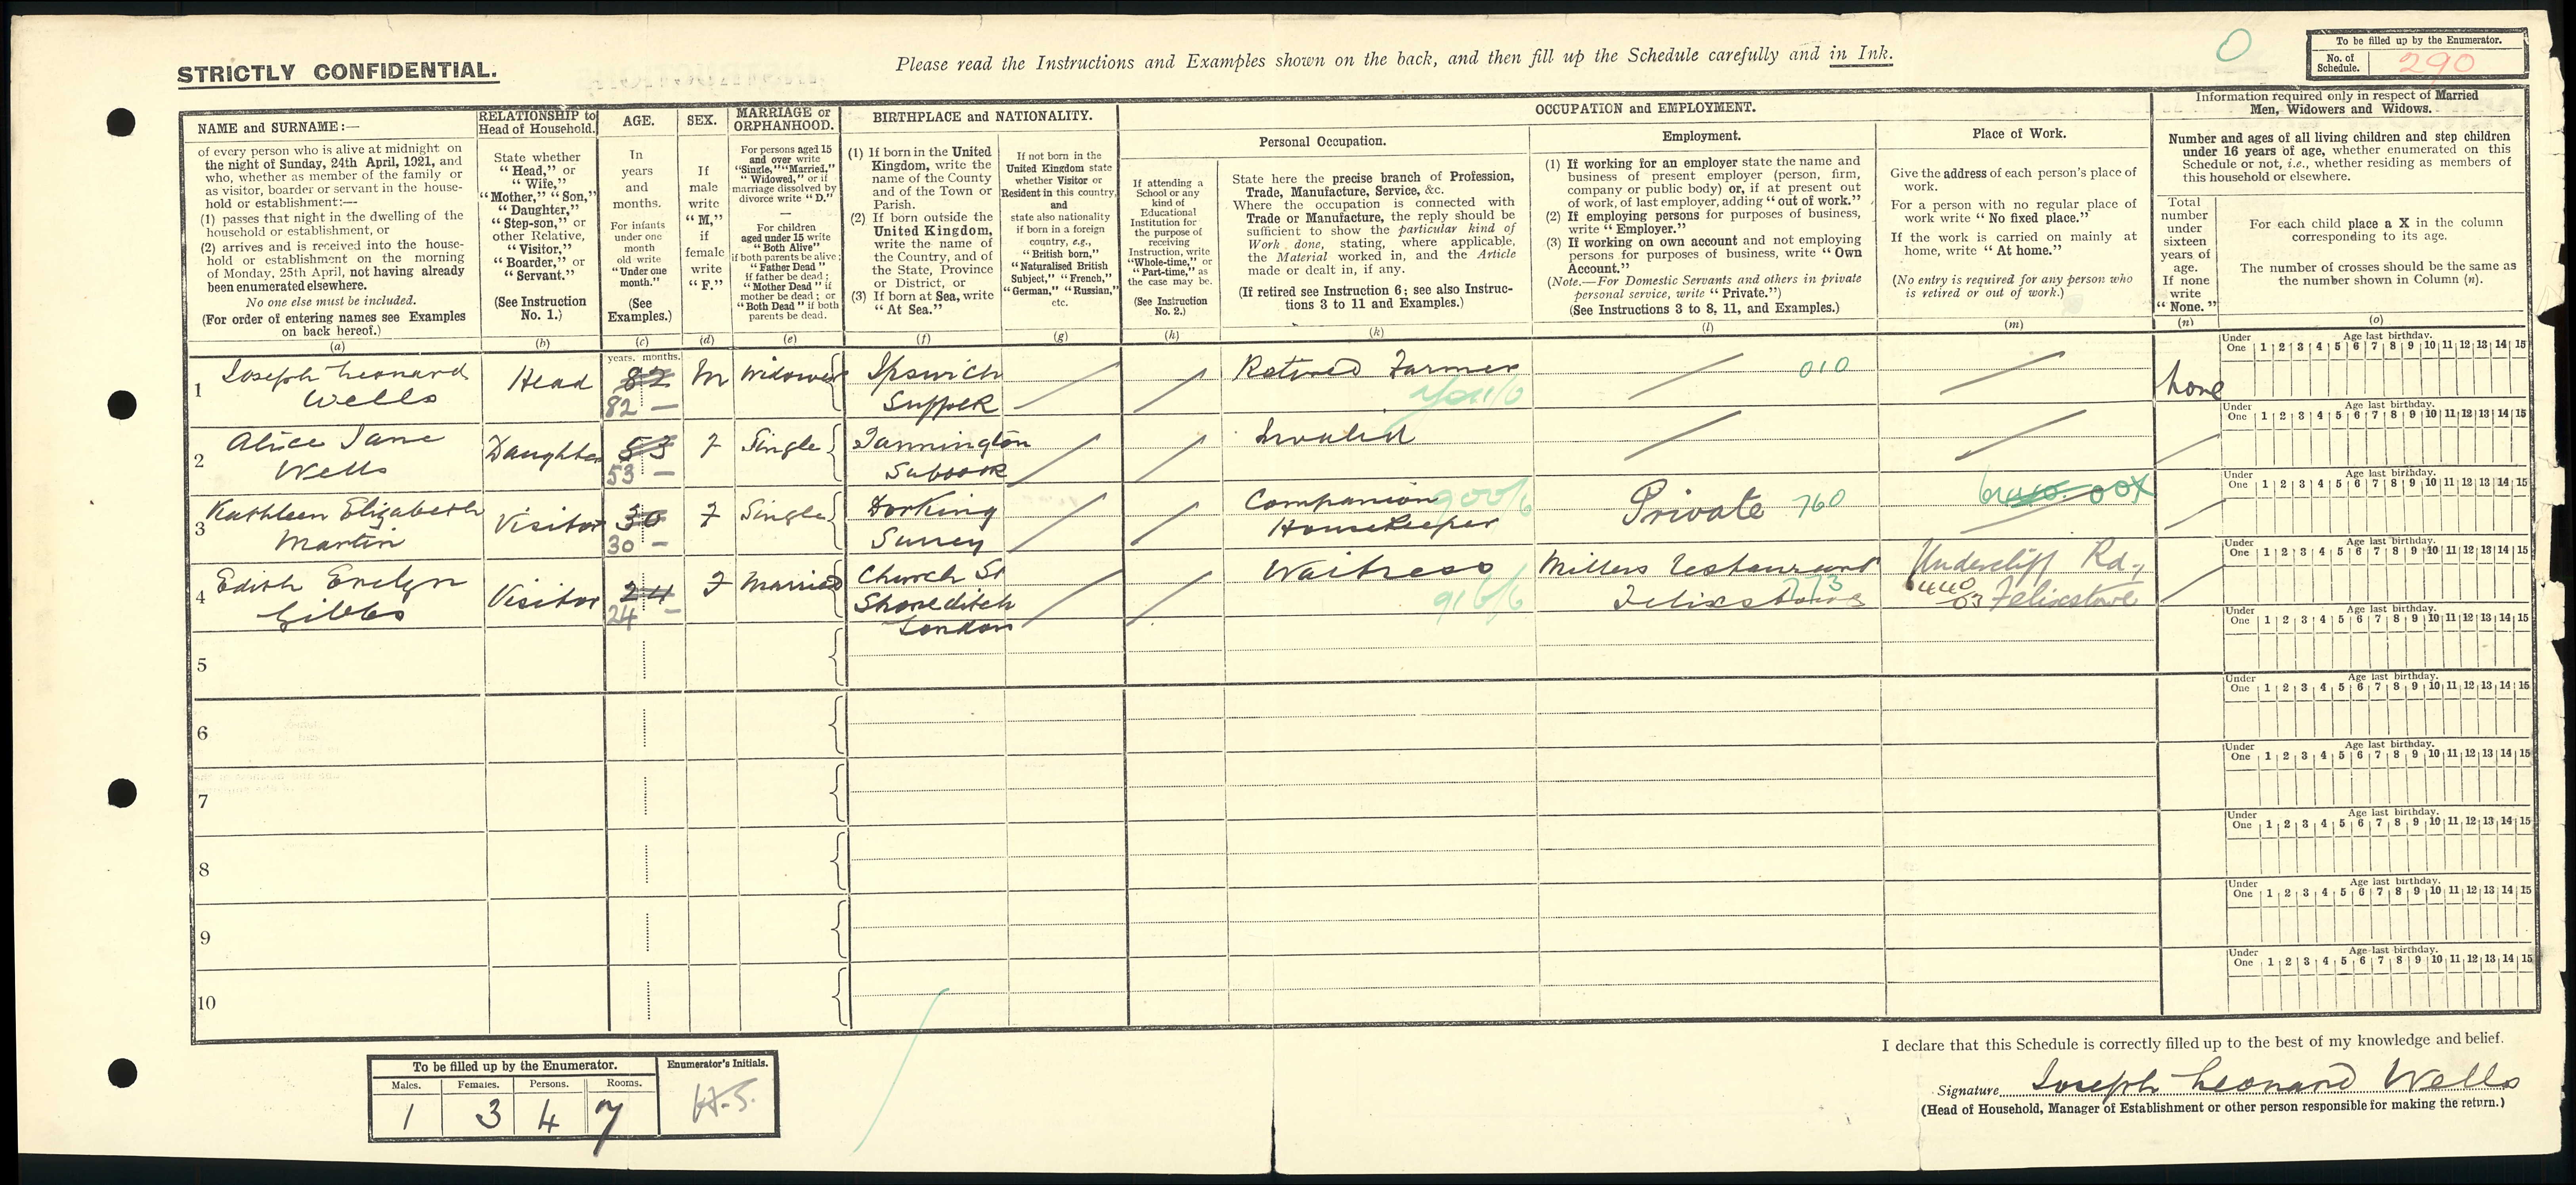 Please read the Instructions and Examples shown on the back, and then fill up the Schedule carefully and in Ink.
STRICTLY CONFIDENTIAL.
0
To be filled up by the Enumerator.
No. of Schedule. 290
NAME and SURNAME:—
of every person who is alive at midnight on
the night of Sunday, 24th April, 1921, and
who, whether as member of the family or
as visitor, boarder or servant in the house-
hold or establishment:—
(1) passes that night in the dwelling of the
household or establishment, or
(2) arrives and is received into the house-
hold or establishment on the morning
of Monday, 25th April, not having already
been enumerated elsewhere.
No one else must be included.
(For order of entering names see Examples
on back hereof.)
(a)
RELATIONSHIP to
Head of Household.
State whether
"Head," or
"Wife,"
"Mother," "Son,"
"Daughter,"
"Step-son," or
other Relative,
"Visitor,"
"Boarder," or
"Servant."
(See Instruction
No. 1.)
(b)
AGE.
In
years
and
months.
For infants
under one
month
old write
"Under one
month."
(See
Examples.)
(c)
SEX.
If
male
write
"M,"
if
female
write
"F."
(d)
MARRIAGE or
ORPHANHOOD.
For persons aged 15
and over write
"Single," "Married,"
"Widowed," or if
marriage dissolved by
divorce write "D."
—
For children
aged under 15 write
"Both Alive"
if both parents be alive;
"Father Dead"
if father be dead;
"Mother Dead" if
mother be dead; or
"Both Dead" if both
parents be dead.
(e)
BIRTHPLACE and NATIONALITY.
(1) If born in the United
Kingdom, write the
name of the County
and of the Town or
Parish.
(2) If born outside the
United Kingdom,
write the name of
the Country, and of
the State, Province
or District, or
(3) If born at Sea, write
"At Sea."
(f)
If not born in the
United Kingdom state
whether Visitor or
Resident in this country,
and
state also nationality
if born in a foreign
country, e.g.,
"British born,"
"Naturalised British
Subject," "French,"
"German," "Russian,"
etc.
(g)
OCCUPATION and EMPLOYMENT.
Personal Occupation.
If attending a
School or any
kind of
Educational
Institution for
the purpose of
receiving
Instruction, write
"Whole-time," or
"Part-time," as
the case may be.
(See Instruction
No. 2.)
(h)
State here the precise branch of Profession,
Trade, Manufacture, Service, &c.
Where the occupation is connected with
Trade or Manufacture, the reply should be
sufficient to show the particular kind of
Work done, stating, where applicable,
the Material worked in, and the Article
made or dealt in, if any.
(If retired see Instruction 6; see also Instruc-
tions 3 to 11 and Examples.)
(k)
Employment.
(1) If working for an employer state the name and
business of present employer (person, firm,
company or public body) or, if at present out
of work, of last employer, adding "out of work."
(2) If employing persons for purposes of business,
write "Employer."
(3) If working on own account and not employing
persons for purposes of business, write "Own
Account."
(Note.—For Domestic Servants and others in private
personal service, write "Private.")
(See Instructions 3 to 8, 11, and Examples.)
(l)
Place of Work.
Give the address of each person's place of
work.
For a person with no regular place of
work write "No fixed place."
If the work is carried on mainly at
home, write "At home."
(No entry is required for any person who
is retired or out of work.)
(m)
Information required only in respect of Married
Men, Widowers and Widows.
Number and ages of all living children and step children
under 16 years of age, whether enumerated on this
Schedule or not, i.e., whether residing as members of
this household or elsewhere.
Total
number
under
sixteen
years of
age.
If none
write
"None."
(n)
For each child place a X in the column
corresponding to its age.
The number of crosses should be the same as
the number shown in Column (n).
(o)
years. months.
1 Joseph Leonard Wells Head 82 82 — M Widower Ipswich Suffolk Retired Farmer 010 None
Under One Age last birthday. 1 2 3 4 5 6 7 8 9 10 11 12 13 14 15
2 Alice Jane Wells Daughter 53 53 — F Single Tannington Invalid
Under One Age last birthday. 1 2 3 4 5 6 7 8 9 10 11 12 13 14 15
3 Kathleen Elizabeth Martin Visitor 30 30 — F Single Dorking Surrey Companion Housekeeper 900/6 Private 760
Under One Age last birthday. 1 2 3 4 5 6 7 8 9 10 11 12 13 14 15
4 Edith Evelyn Gibbs Visitor 24 24 — F Married Church St Shoreditch London Waitress 916/6 Millers Restaurant Felixstowe 773 Undercliff Rd., Felixstowe
Under One Age last birthday. 1 2 3 4 5 6 7 8 9 10 11 12 13 14 15
5
Under One Age last birthday. 1 2 3 4 5 6 7 8 9 10 11 12 13 14 15
6
Under One Age last birthday. 1 2 3 4 5 6 7 8 9 10 11 12 13 14 15
7
Under One Age last birthday. 1 2 3 4 5 6 7 8 9 10 11 12 13 14 15
8
Under One Age last birthday. 1 2 3 4 5 6 7 8 9 10 11 12 13 14 15
9
Under One Age last birthday. 1 2 3 4 5 6 7 8 9 10 11 12 13 14 15
10
Under One Age last birthday. 1 2 3 4 5 6 7 8 9 10 11 12 13 14 15
To be filled up by the Enumerator.
Males. Females. Persons. Rooms.
1 3 4 7
Enumerator's Initials.
H.S.
I declare that this Schedule is correctly filled up to the best of my knowledge and belief.
Signature Joseph Leonard Wells
(Head of Household, Manager of Establishment or other person responsible for making the return.)